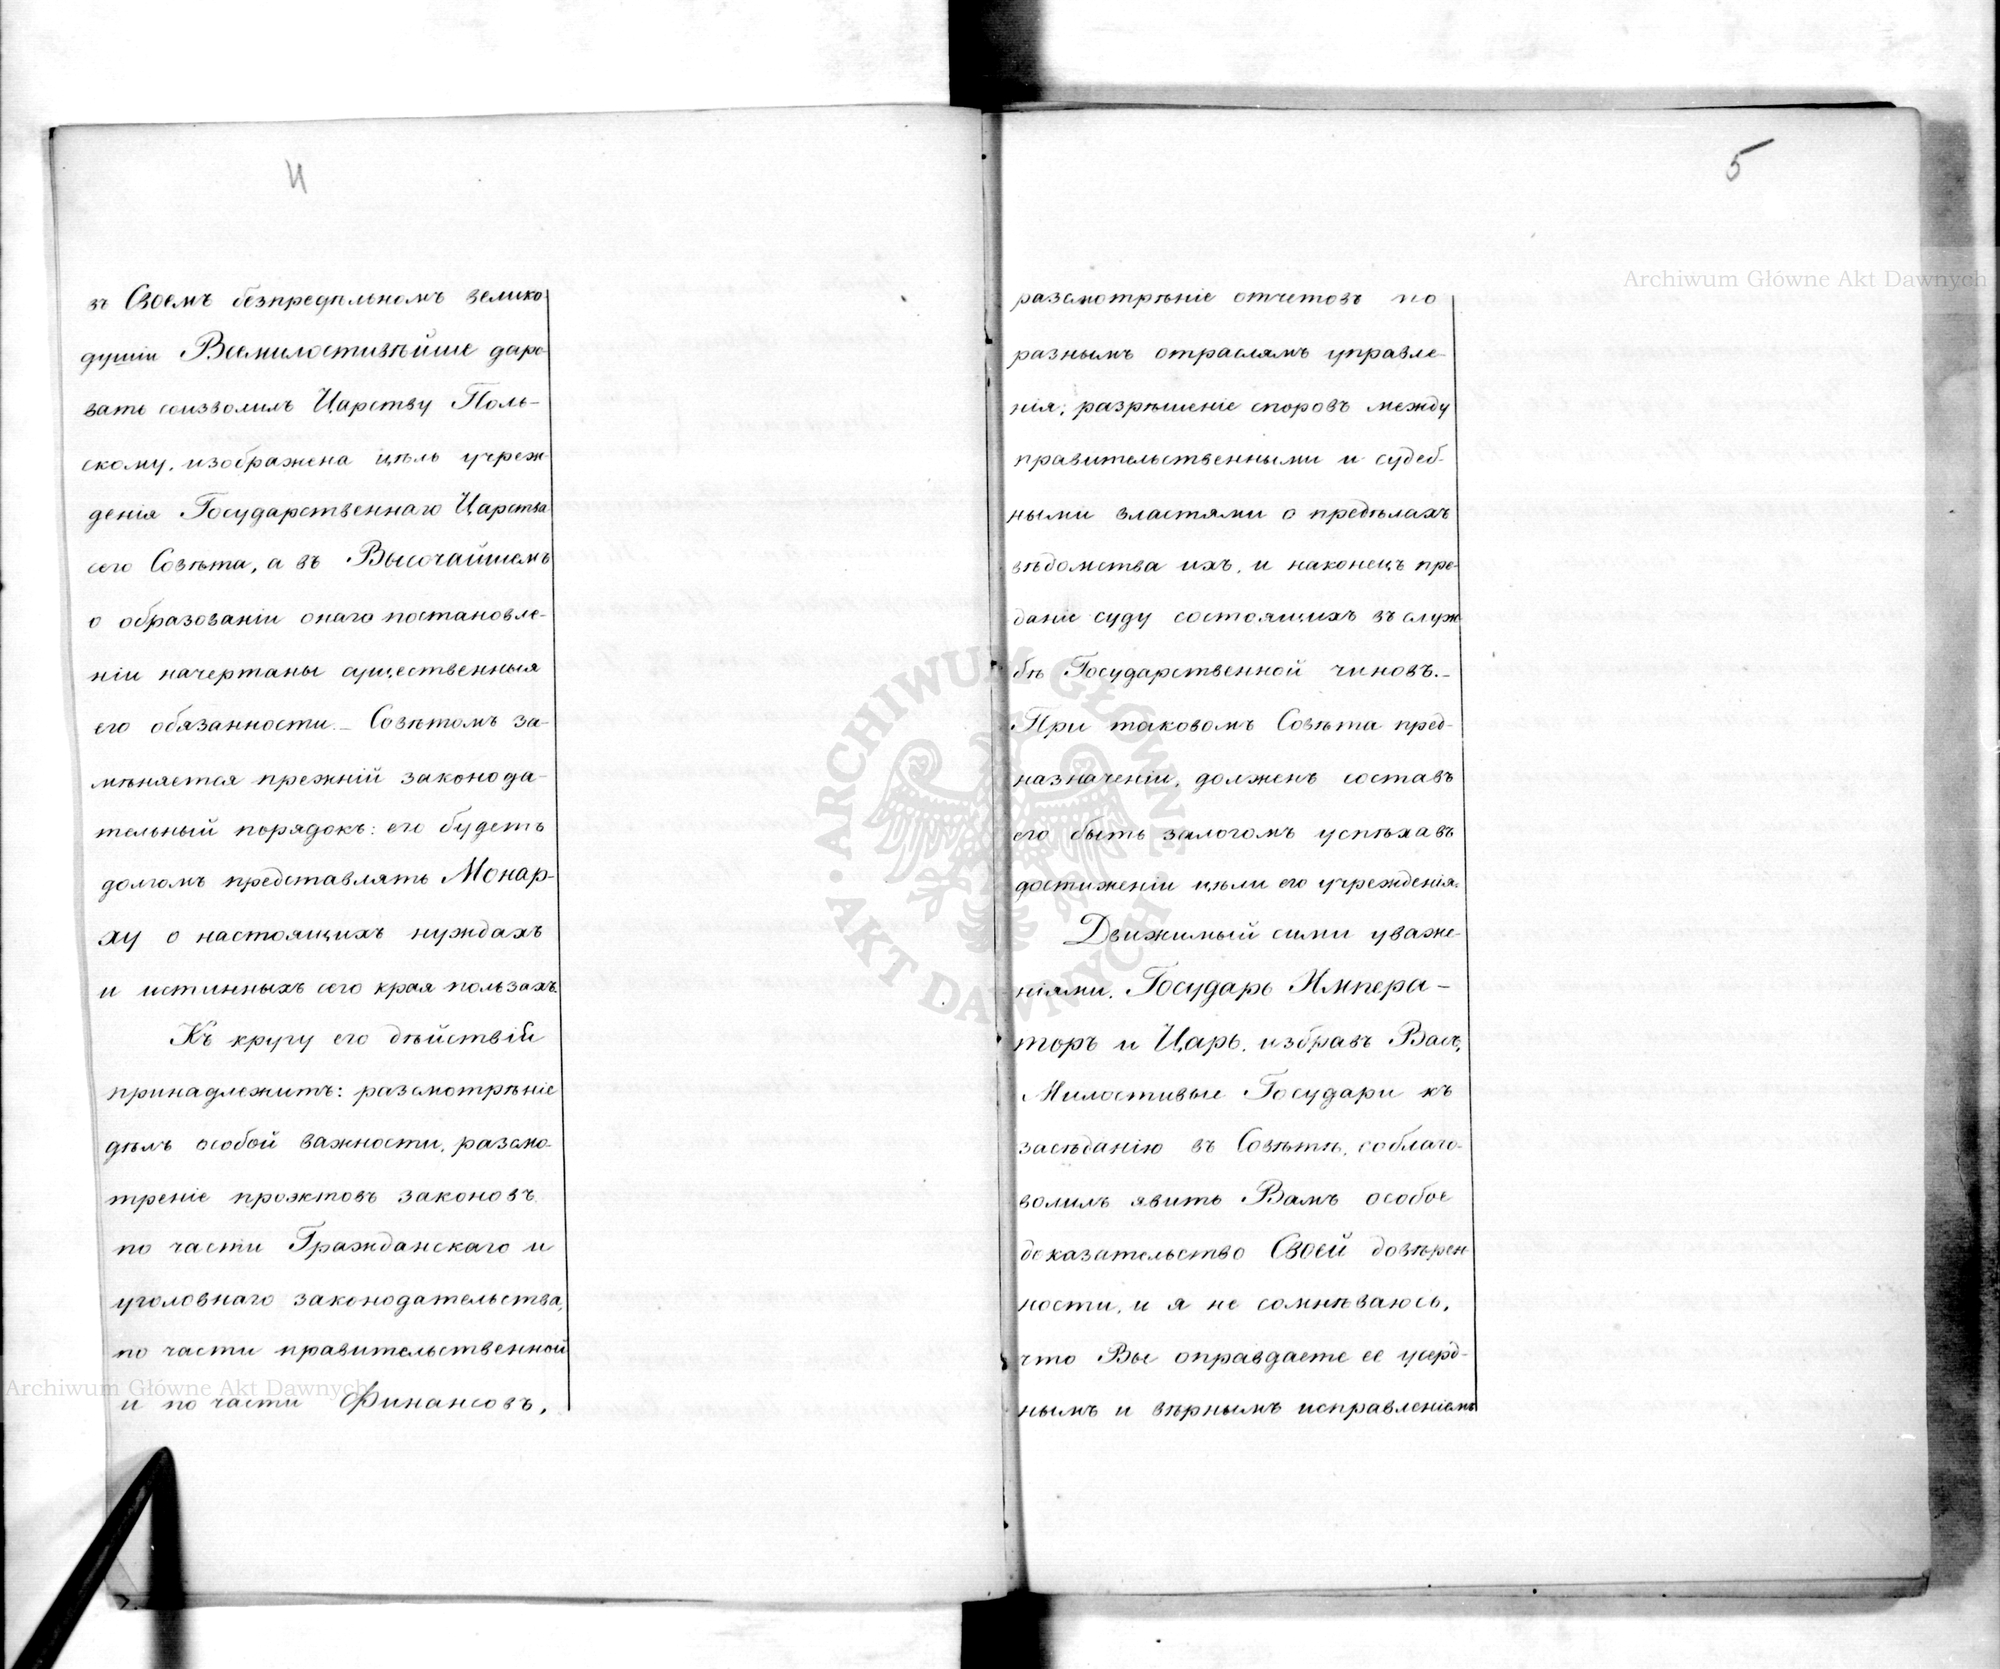 4
въ Своемъ безпредѣльномъ велико
душіи Всемилостивѣйше даро
вать соизволилъ Царству Поль-
скому, изображена цѣль учреж
денія Государственнаго Царства
сего Совѣта, а въ Высочайшемъ
о образованіи онаго постановле-
ніи начертаны существенныя
его обязанности. – Совѣтомъ за-
мѣняется прежній законода-
тельный порядокъ: его будетъ
долгомъ представлять Монар-
ху о настоящихъ нуждахъ
и истинныхъ сего края пользахъ.
Къ кругу его дѣйствій
принадлежитъ: разсмотрѣніе
дѣлъ особой важности, разсмо-
треніе проэктовъ законовъ
по части Гражданскаго и
уголовнаго законодательства,
по части правительственной
и по части Финансовъ,
5
разсмотрѣніе отчетовъ по
разнымъ отраслямъ управле-
нія; разрѣшеніе споровъ между
правительственными и судеб-
ными властями о предѣлахъ
вѣдомства ихъ, и наконецъ пре-
даніе суду состоящихъ въ служ
бѣ Государственной чиновъ. –
При таковомъ Совѣта пред-
назначеніи, долженъ составъ
его быть залогомъ успѣха въ
достиженіи цѣли его учрежденія.
Движимый сими уваже-
ніями, Государь Импера-
торъ и Царь, избравъ Васъ,
Милостивые Государи къ
засѣданію въ Совѣтѣ, соблаго-
волилъ явить Вамъ особое
доказательство Своей довѣрен
ности, и я не сомнѣваюсь,
что Вы оправдаете ее усерд-
нымъ и вѣрнымъ исправленіемъ
Archiwum Główne Akt Dawnych
Archiwum Główne Akt Dawnych
ARCHIWUM GŁÓWNE · AKT DAWNYCH ·